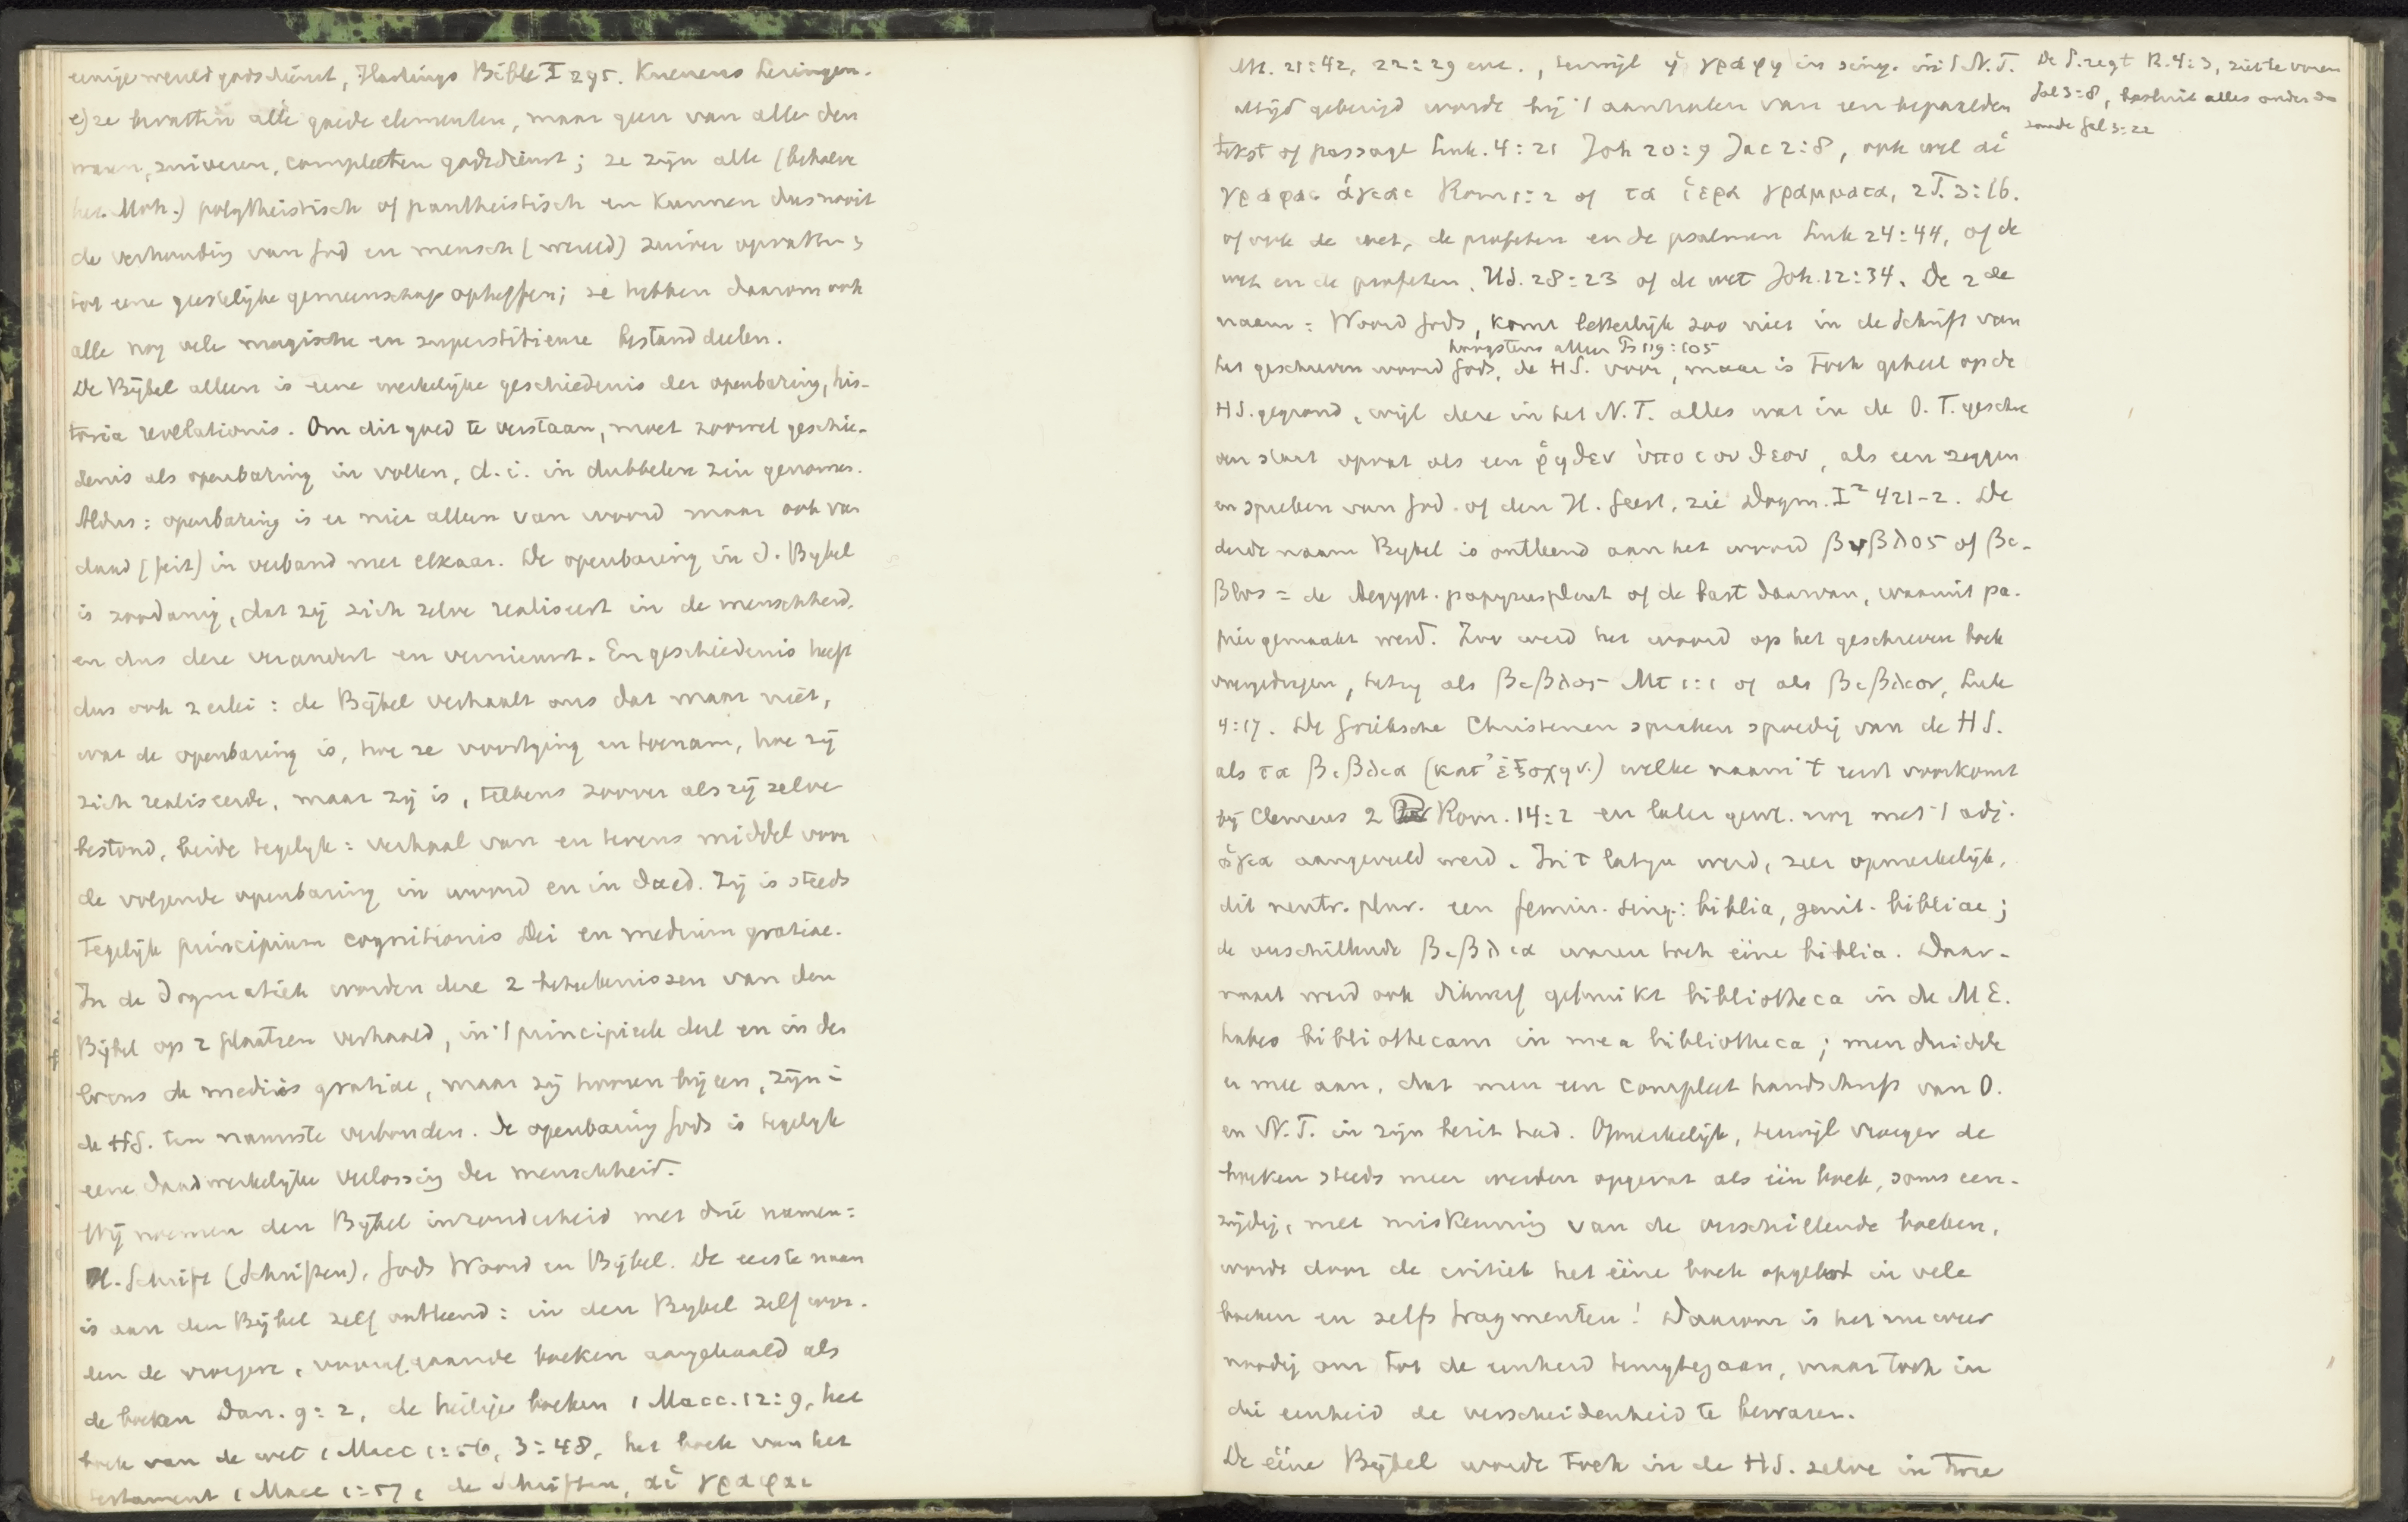 eenige wereldgodsdienst, Hastings Bible I 295. Kuenens lezingen.
e) ze bevatten alle goede elementen, maar geen van alle den
waren, zuiveren, compleeten godsdienst; ze zijn alle (behalve
het Moh.) polytheistisch of pantheistisch en kunnen dus nooit
de verhouding van God en mensch (wereld) zuiver opvatten,
tot eene geestelijke gemeenschap opheffen; ze hebben daarom ook
alle nog vele magische en superstitieuse bestanddeelen.
De Bijbel alleen is eene werkelijke geschiedenis der openbaring, his-
toria revelationis. Om dit goed te verstaan, moet zoowel geschie-
denis als openbaring in vollen, d.i. in dubbelen zin genomen.
Aldus: openbaring is er niet alleen van woord maar ook van
daad (feit) in verband met elkaar. De openbaring in d. Bijbel
is zoodanig, dat zij zich zelve realiseert in de menschheid,
en dus deze verandert en vernieuwt. En geschiedenis heeft
dus ook 2erlei: de Bijbel verhaalt ons dat maar niet,
wat de openbaring is, hoe ze voortging en toenam, hoe zij
zich realiseerde, maar zij is, telkens zoover als zij zelve
bestond, beide tegelijk: verhaal van en tevens middel voor
de volgende openbaring in woord en in daad. Zij is steeds
tegelijk principium cognitionis Dei en medium gratiae.
In de dogmatiek worden deze 2 beteekenissen van den
Bijbel op 2 plaatsen verhaald, in 't principieele deel en in den
locus de mediis gratiae, maar zij hooren bijeen, zijn i
de HS. ten nauwste verbonden. De openbaring Gods is tegelijk
eene daadwerkelijke verlossing der menschheid.
Wij noemen den Bijbel inzonderheid met drie namen:
H. Schrift (Schriften), Gods Woord en Bijbel. De eerste naam
is aan den Bijbel zelf ontleend: in den Bijbel zelf wor-
den de vroegere, voorafgaande boeken aangehaald als
de boeken Dan. 9:2, de heilige boeken 1 Macc. 12:9, het
boek van de wet 1 Macc 1:56, 3:48, het boek van het
testament 1 Macc 1:57, de Schriften, αἱ γραφαι
Mt. 21:42, 22:29 enz., terwijl ἡ γραφη in sing. in 't N.T.
altijd gebezigd wordt bij 't aanhalen van een bepaalden
tekst of passage Luk. 4:21 Joh 20:9 Jac 2:8, ook wel αἱ
γραφαι ἁγιαι Rom 1:2 of τα ἱερα γραμματα, 2T. 3:16.
of ook de wet, de profeten en de psalmen Luk 24:44, of de
wet en de profeten, Hd. 28:23 of de wet Joh. 12:34. De 2de
naam: Woord Gods, komt letterlijk zoo niet in de Schrift van
hoogstens alleen Ps 119:105
het geschreven woord Gods, de HS. voor, maar is toch geheel op de
HS. gegrond, wijl deze in het N.T. alles wat in de O.T. geschre
ven staat opvat als een ῥηθεν ὑπο του θεου, als een zeggen
en spreken van God. of den H. Geest, zie Dogm. I² 421-2. De
derde naam Bijbel is ontleend aan het woord βυβλος of βι-
βλος = de Aegypt. papyrusplant of de bast daarvan, waaruit pa-
pier gemaakt werd. Zoo werd het woord op het geschreven boek
overgedragen, hetzij als βιβλος Mt 1:1 of als βιβλιον, Luk
4:17. De Grieksche Christenen spraken spoedig van de HS.
als τα βιβλια (κατ' ἐξοχην.) welke naam 't eerst voorkomt
bij Clemens 2 Rom. 14:2 en later gew. nog met 't adj.
ἁγια aangevuld werd. In 't latijn werd, zeer opmerkelijk,
dit neutr. plur. een femin. sing.: biblia, genit. bibliae;
de verschillende βιβλια waren toch ééne biblia. Daar-
naast werd ook dikwerf gebruikt bibliotheca in de ME.
habeo bibliothecam in mea bibliotheca; men duidde
er mee aan, dat men een compleet handschrift van O.
en N.T. in zijn bezit had. Opmerkelijk, terwijl vroeger de
boeken steeds meer werden opgevat als één boek, soms een-
zijdig, met miskenning van de verschillende boeken,
wordt door de critiek het ééne boek opgelost in vele
boeken en zelfs fragmenten! Daarom is het nu weer
noodig om tot de eenheid terugtegaan, maar toch in
die eenheid de verscheidenheid te bewaren.
De ééne Bijbel wordt toch in de HS. zelve in twee
De S. zegt R. 4:3, ziet te voren
Gal 3:8, besluit alles onder de
zonde Gal 3:22